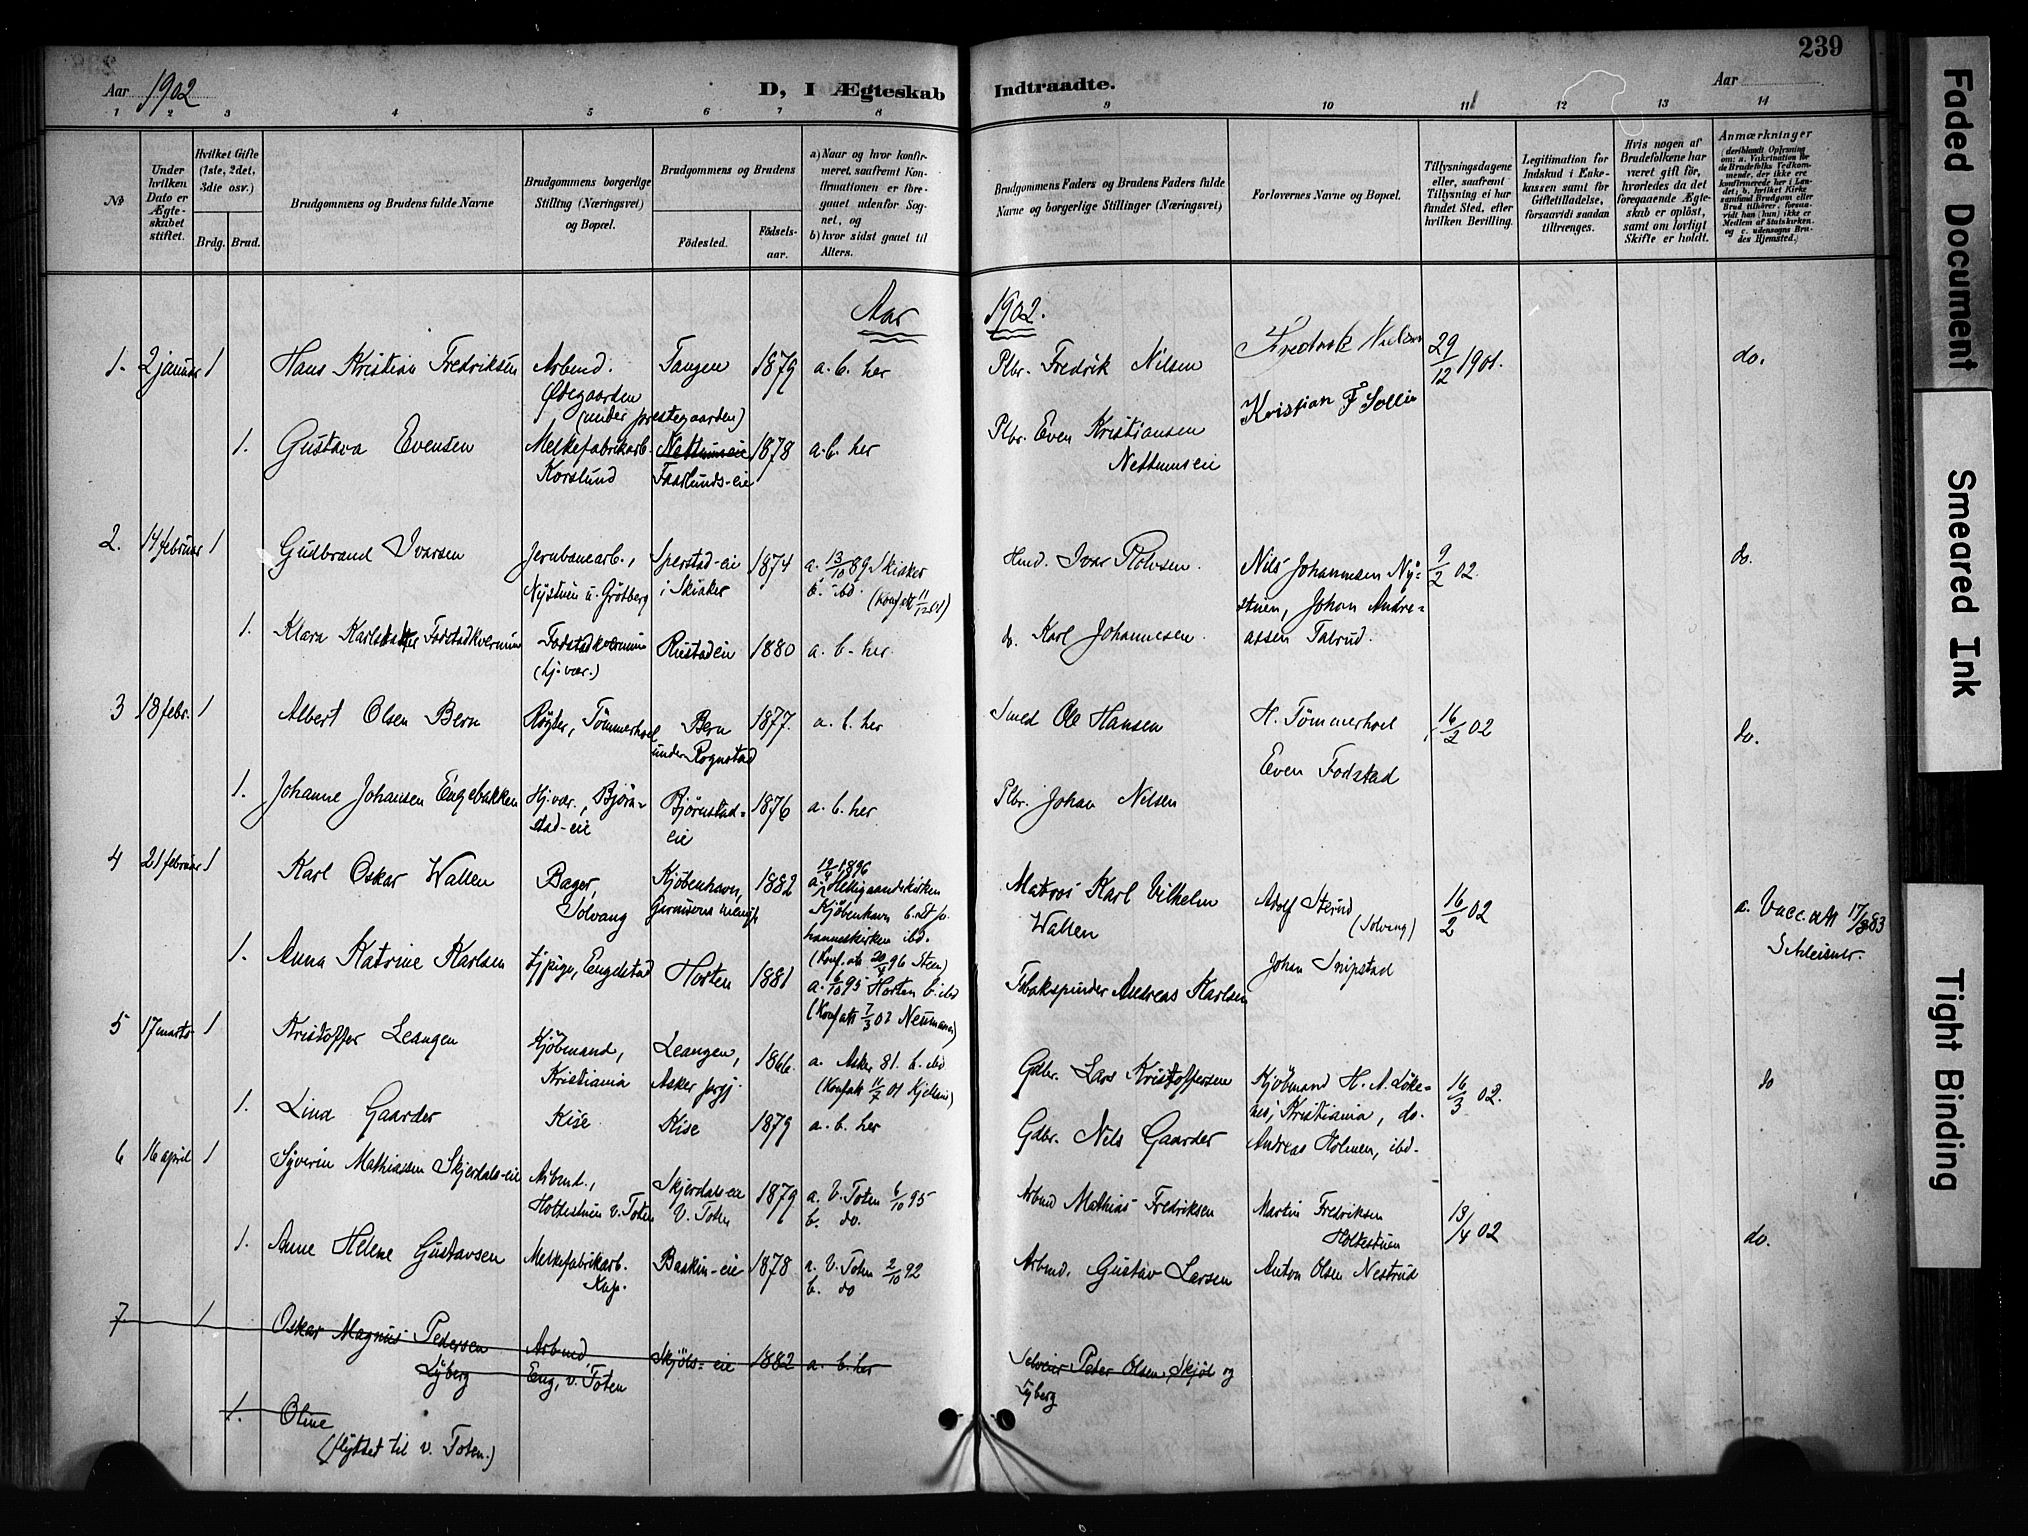 239
Aar 1902
D, I Ægteskab Indtraadte.
Aar
1 2 3 4 5 6 7 8 9 10 11 12 13 14
No
Under hvilken Dato er Ægteskabet stiftet.
Hvilket Gifte (1ste, 2det, 3die osv.)
Brdg. Brud.
Brudgommens og Brudens fulde Navne
Brudgommens borgerlige Stilling (Næringsvei) og Bopæl.
Brudgommens og Brudens
Födested.
Födselsaar.
a) Naar og hvor konfirmeret, saafremt Konfirmationen er foregaaet udenfor Sognet, og
b) hvor sidst gaaet til Alters.
Brudgommens Faders og Brudens Faders fulde Navne og borgerlige Stillinger (Næringsvei)
Forlovernes Navne og Bopæl.
Tillysningsdagene eller, saafremt Tillysning ei har fundet Sted, efter hvilken Bevilling.
Legitimation for Indskud i Enkekassen samt for Giftetilladelse, forsaavidt saadan tiltrænges.
Hvis nogen af Brudefolkene har været gift før, hvorledes da det foregaaende Ægteskab er oplöst, samt om lovligt Skifte er holdt.
Anmærkninger
(deriblandt Oplysning om: a. Vakcination for de Brudefolks Vedkommende, der ikke ere konfirmerede her i Landet; b. hvilket Kirkesamfund Brudgom eller Brud tilhörer, forsaavidt han (hun) ikke er Medlem af Statskirken, og c. udensogns Brudes Hjemsted.)
Aar 1902.
1. 2 januar 1 Hans Kristian Fredriksen Arbmd. Ødegaarden (under prestegaarden) Tangen 1879 a. b. her Plbr. Fredrik Nilsen Fredrik Nielsen 29/12 1901. do.
1. Gustava Evensen Melkefabrikarb. Korslund Nettumseie Faaslunds-eie 1878 a. b. her Plbr. Even Kristiansen Nettumseie Kristian F Sollin
2. 14 februar 1 Gudbrand Ivarsen Jernbanearb., Nystuen u. Grötberg Sperstad-eie i Skiaker 1874 a. 13/10 89 Skiaker b. ibd. Hmd. Ivar Nils Johannesen Nystuen, Johan Andreassen Talrud. 9/2 02. do.
1. Klara Karlsdatter Fodstadkvernin Fodstadkvernin (hj. vær.) Rustadeie 1880 a. b. her. do. Karl Johannesen.
3 18 febr. 1 Albert Olsen Bern Røgter, Tömmerhoel Bern under Rognstad 1877. a. b. her Smed Ole Hansen H. Tömmerhoel 16/2 02 do.
Even Fodstad
1. Johanne Johansen Engebakken Hj. vær., Bjørnstad-eie Bjørnstad-eie 1876 a. b. her Plbr. Johan Nilsen
4 21 februar 1 Karl Oskar Wallen Bager, Solvang Kjöbenhavn, Garnisons menigh 1882 a. 19/4 1896 Helligaandskirken Kjöbenhavn b. St Johanneskirken ibd. (Konf.att. 20/4 96 Steen) Matros Karl Vilhelm Wallen Adolf Sterud (Solvang) 16/2 02 a. Vacc. att 17/8 83 Schleisner.
1. Anna Katrine Karlsen tjpige, Engelstad Horten 1881 a. 6/10 95 Horten b. ibd (Konfatt 7/3 02 Neumann) Tobakspinder Andreas Karlsen Johan Snipstad
5 17 marts 1 Kristoffer Leangen Kjöbmand, Kristiania Leangen, Asker prgj. 1866. a. Asker 81. b. ibd (Konfatt 11/7 01) Gdbr. Lars Kristoffersen Kjöbmand H. A. Lökenes, Kristiania, do. Andreas Holmen, ibd. 16/3 02. do
1. Lina Gaarder Kise Kise 1879 a. b. her Gdbr. Nils Gaarder
6 16 april 1 Syverin Mathiassen Skjerdals-eie Arbmd., Holtestuen v. Toten Skjerdals-eie V. Toten 1879 a. V. Toten 6/10 95 b. do. Arbmd Mathias Fredriksen Martin Fredriksen Holtestuen 13/4 02 do.
1. Anne Helene Gustavsen Melkefabrikarb. Kap. Baskin-eie 1878 a. V. Toten 2/10 92 b. do Arbmd. Gustav Larsen Anton Olsen Nestrud
7 1 Oskar Magnus Pedersen Lyberg Arbmd Eng, v. Toten Skjöls-eie 1882 a. b. her Selveier Peter Olsen, Skjöl og Lyberg
1. Oline
(flyttet til v. Toten.)
Faded Document
Smeared Ink
Tight Binding